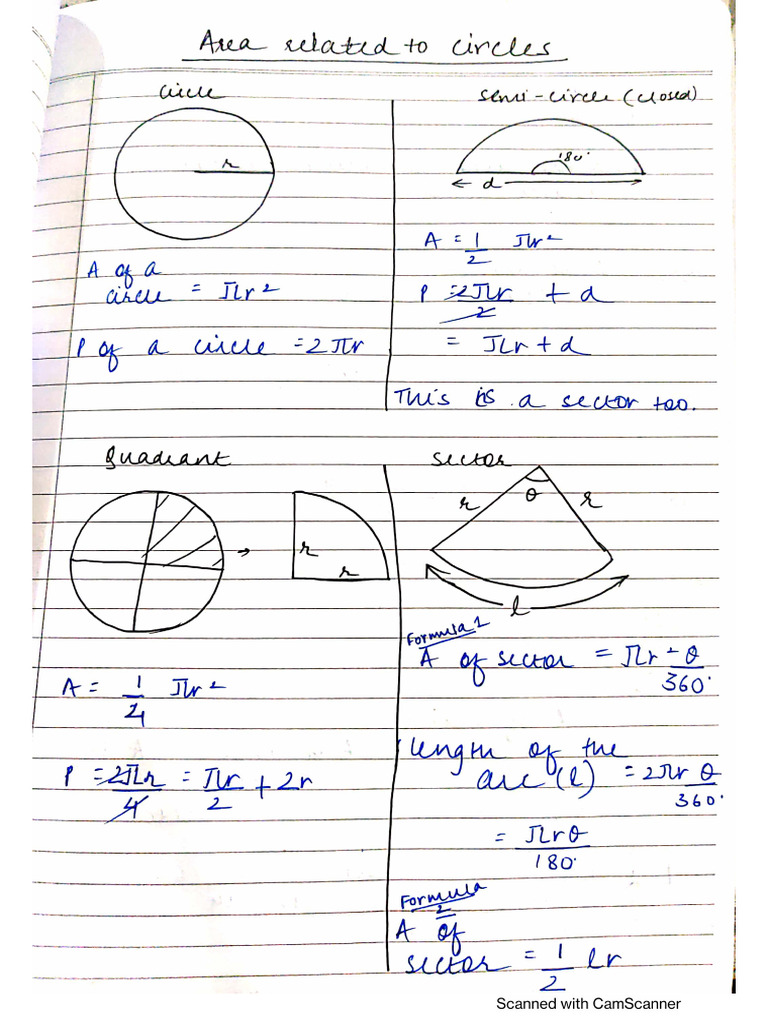 Area related to circles
circle
r
A of a
circle = πr²
P of a circle = 2πr
semi-circle (closed)
180°
d
A = 1/2 πr²
P = 2πr/2 + d
= πr + d
This is a sector too.
Quadrant
r
r
A = 1/4 πr²
P = 2πr/4 = πr/2 + 2r
sector
r θ r
l
Formula 1
A of sector = πr² θ/360°
length of the
arc (l) = 2πr θ/360°
= πrθ/180°
Formula
2
A of
sector = 1/2 lr
Scanned with CamScanner